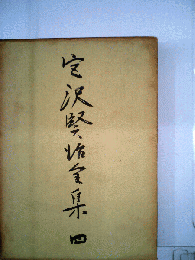 宮沢賢治全集 四